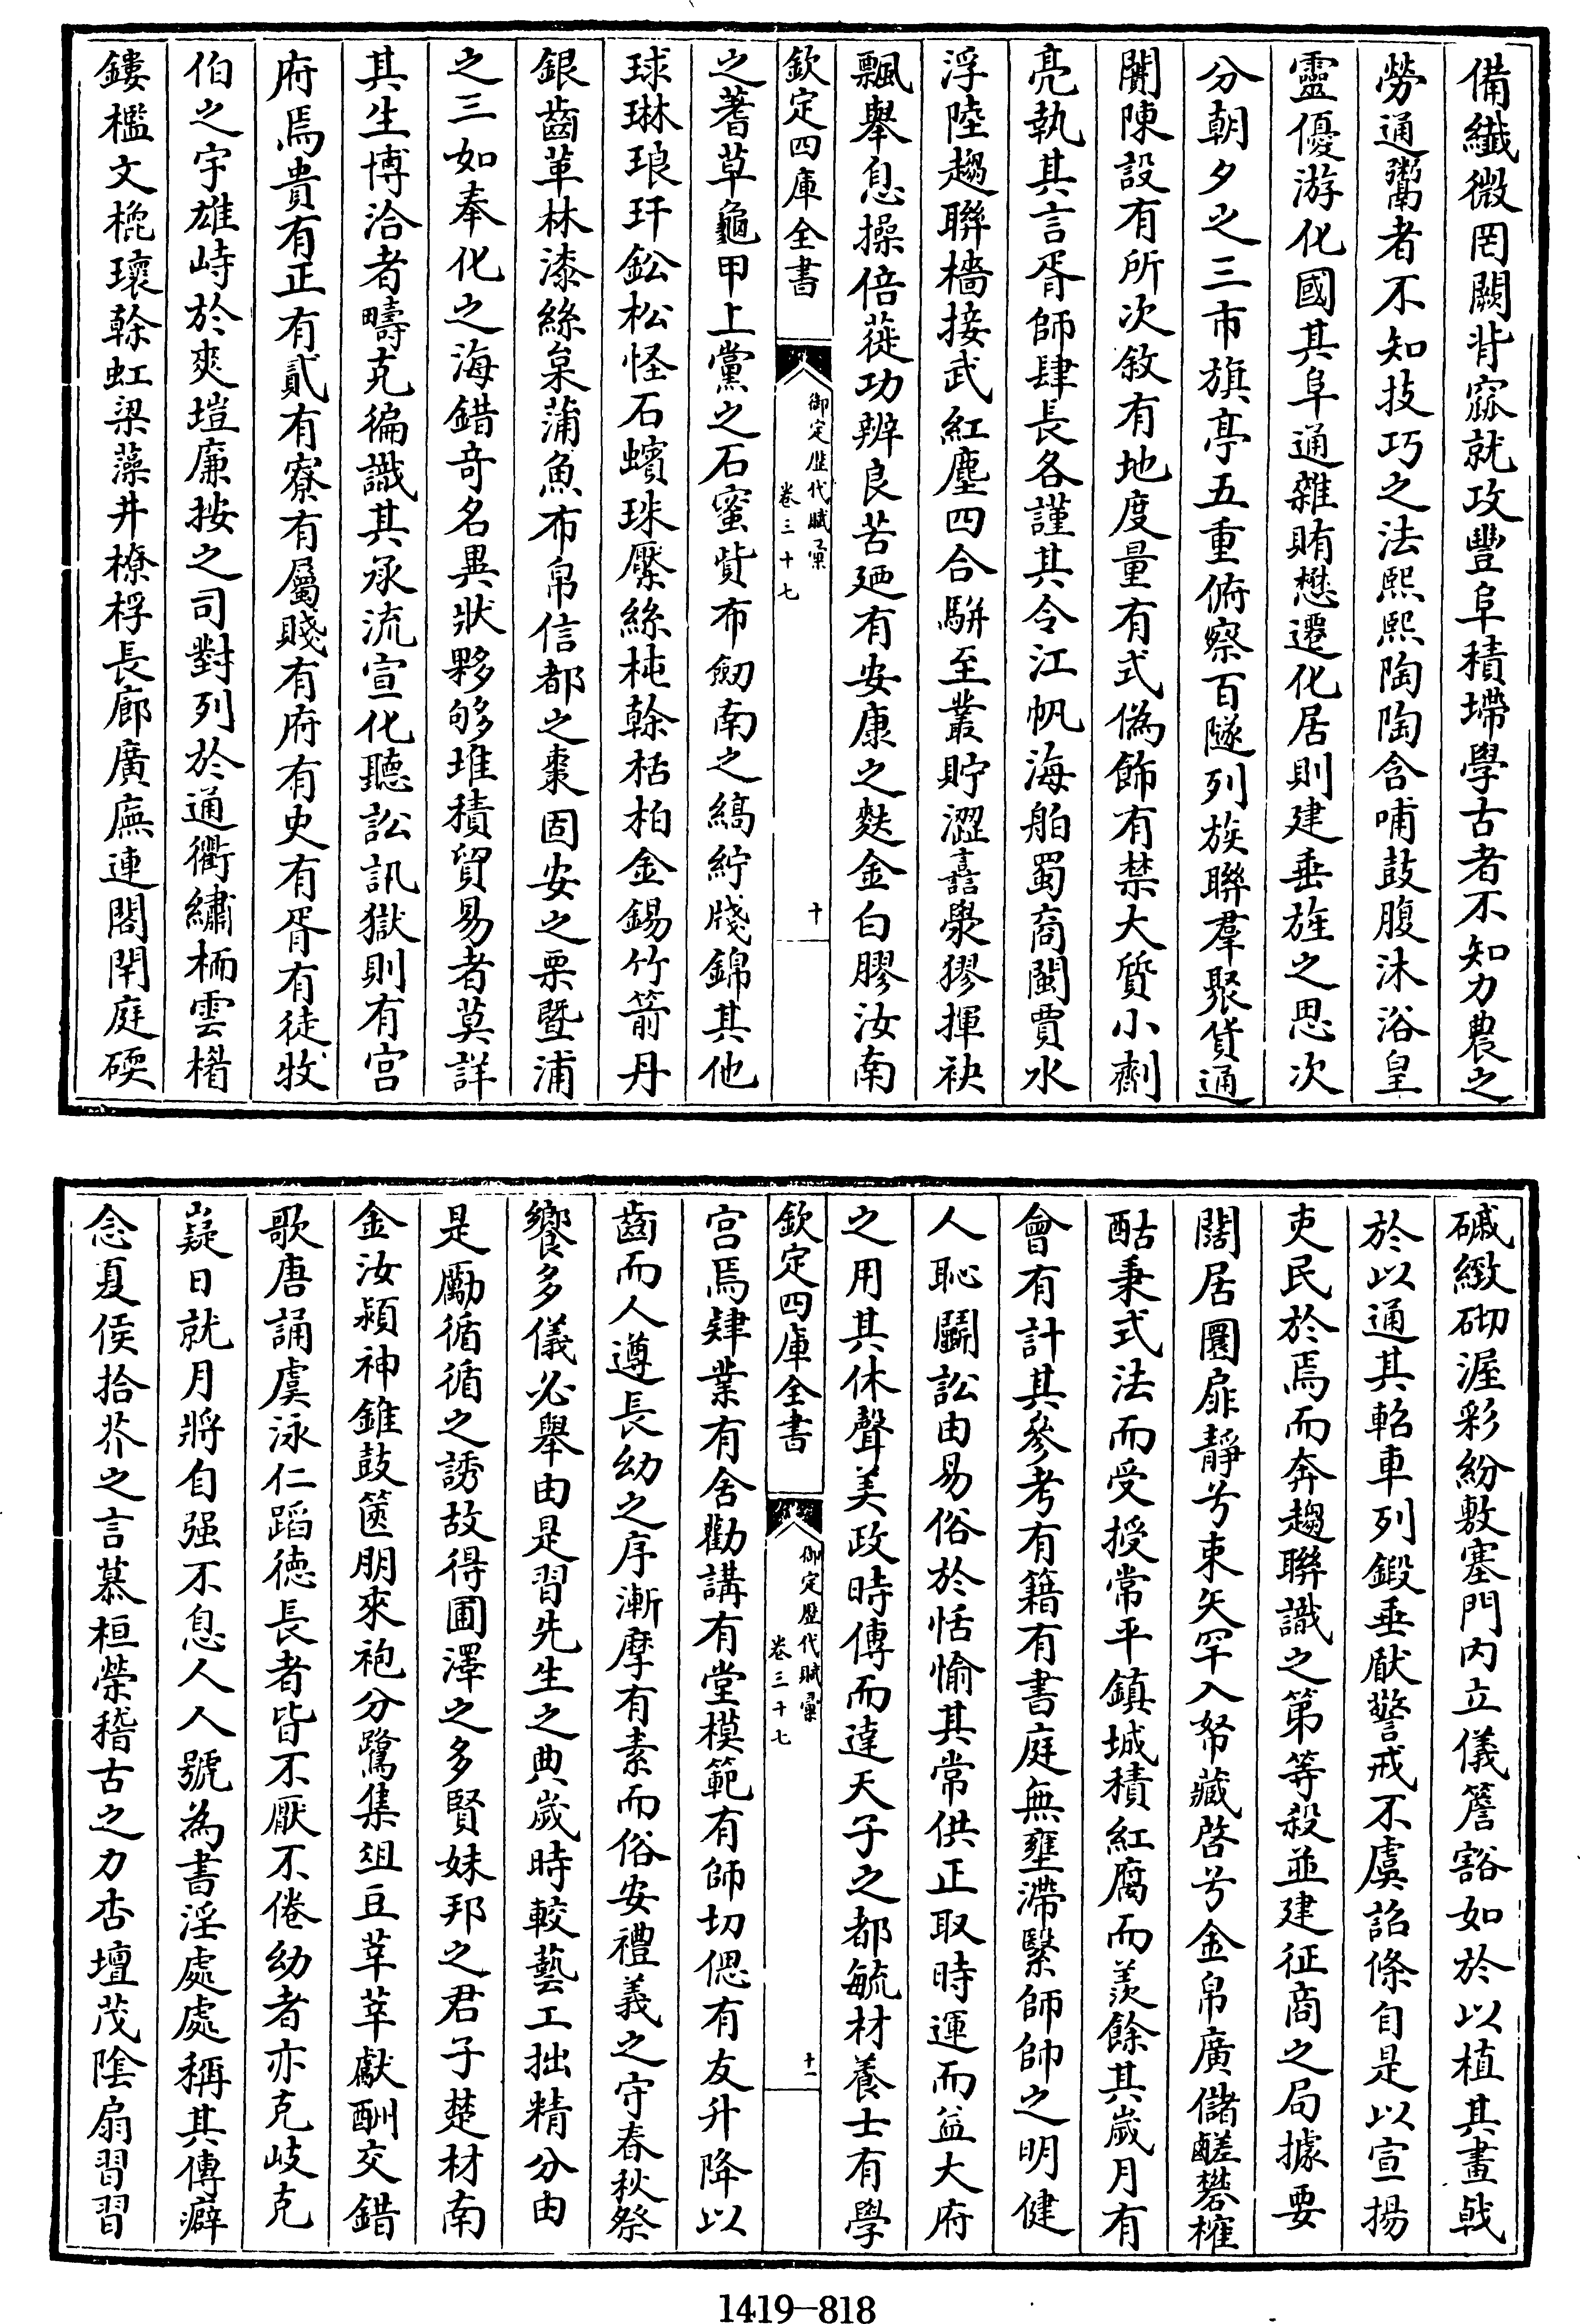 備纖微罔闕背窳就攻豐阜積墆學古者不知力農之
勞通鬻者不知技巧之法熙熙陶陶含哺鼓腹沐浴皇
靈優游化國其阜通雜賄懋遷化居則建垂旌之思次
分朝夕之三市旗亭五重俯察百隧列族聯羣聚貨通
闠陳設有所次敘有地度量有式偽飾有禁大質小劑
亮執其言胥師肆長各謹其令江帆海舶蜀商閩賈水
浮陸趨聯檣接武紅塵四合駢至叢貯澀譶澩㺒揮袂
飄舉息操倍蓰功辨良苦廼有安康之麩金白膠汝南
欽定四庫全書
御定歷代賦彙
卷三十七
十
之蓍草龜甲上黨之石蜜貲布劒南之縞紵牋錦其他
球琳琅玕鈆松怪石蠙珠檿絲杶榦栝柏金錫竹箭丹
銀齒革林漆絲枲蒲魚布帛信都之棗固安之栗暨浦
之三如奉化之海錯竒名異狀夥够堆積貿易者莫詳
其生博洽者疇克徧識其承流宣化聽訟訊獄則有宫
府焉貴有正有貳有寮有屬賤有府有史有胥有徒牧
伯之宇雄峙於爽塏廉按之司對列於通衢繡栭雲楣
鏤檻文㮰瓌榦虹梁藻井橑桴長廊廣廡連閣閈庭碝
磩緻砌渥彩紛敷塞門内立儀簷豁如於以植其畫戟
於以通其軺車列鍛垂厭警戒不虞詔條自是以宣揚
吏民於焉而奔趨聯識之第等殺並建征商之局據要
闊居圜扉靜兮束矢罕入帑藏啓兮金帛廣儲鹺礬榷
酤秉式法而受授常平鎮城積紅腐而羨餘其歲月有
會有計其參考有籍有書庭無壅滯繄師帥之明健
人恥鬭訟由易俗於恬愉其常供正取時運而益大府
之用其休聲美政時傳而達天子之都毓材養士有學
欽定四庫全書
御定歷代賦彙
卷三十七
十一
宫焉肄業有舍勸講有堂模範有師切偲有友升降以
齒而人遵長幼之序漸摩有素而俗安禮義之守春秋祭
饗多儀必舉由是習先生之典歲時較藝工拙精分由
是勵循循之誘故得圃澤之多賢妹邦之君子楚材南
金汝潁神錐鼓篋朋來袍分鷺集俎豆莘莘獻酬交錯
歌唐誦虞泳仁蹈德長者皆不厭不倦幼者亦克岐克
嶷日就月將自强不息人人號為書淫處處稱其傳癖
念夏侯拾芥之言慕桓榮稽古之力杏壇茂隂扇習習
1419—818